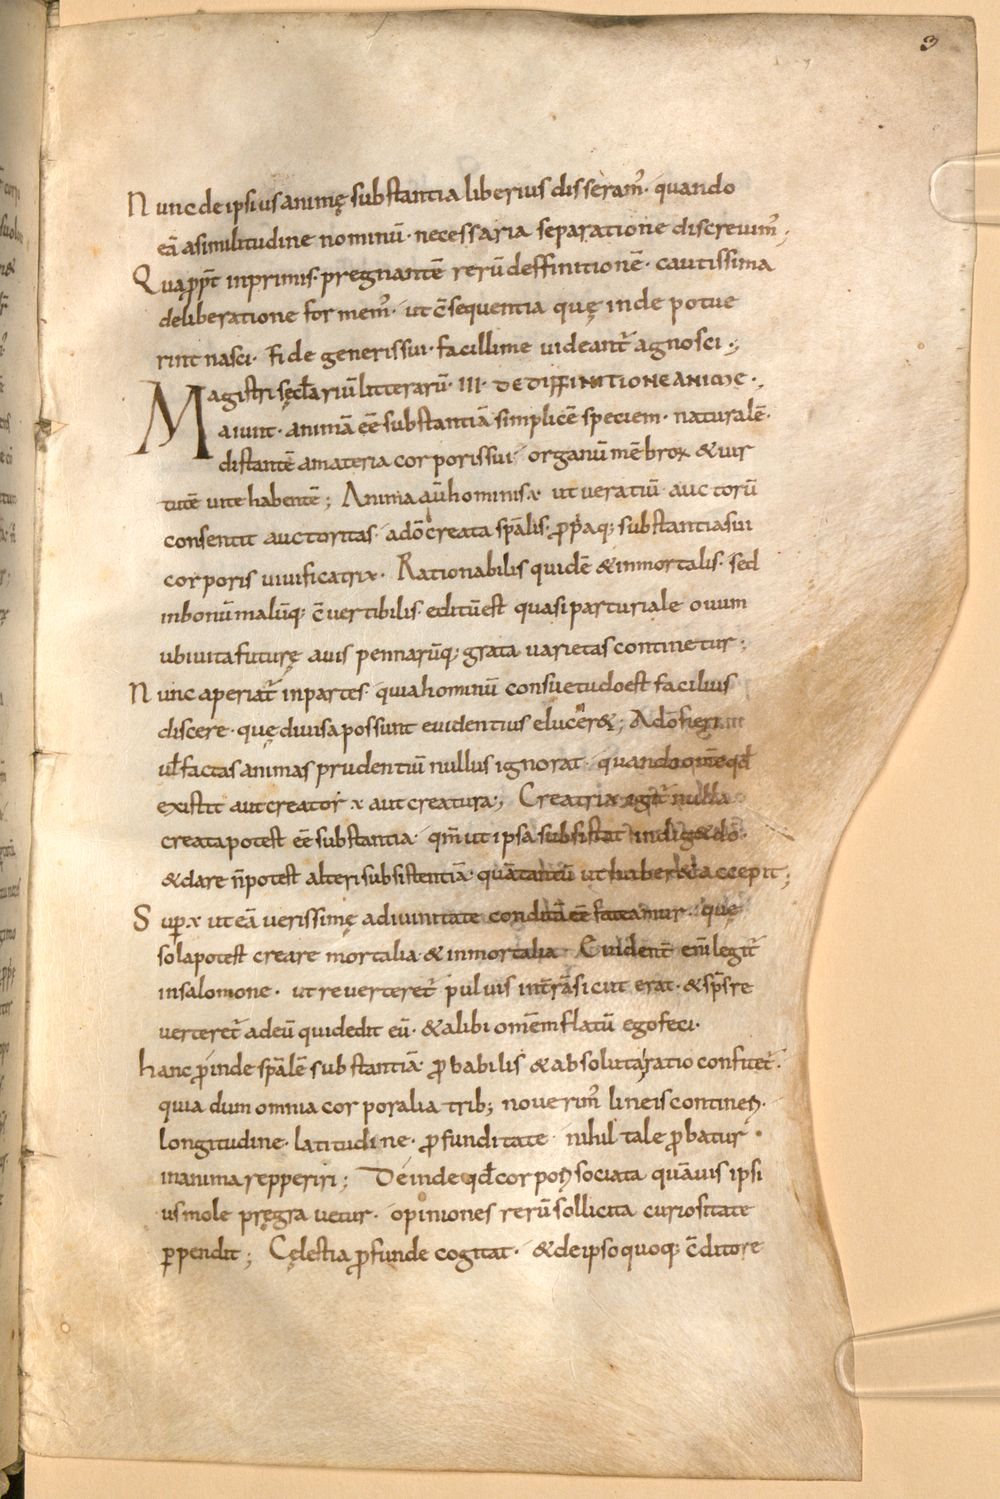 3
Nunc de ipsius animę substantia liberius disseram᷒· quando
eā a similitudine nominū· necessaria separatione discreuim᷒;
Quapp̄t inprimis· pregnantē rerū deffinitionē· cautissima
deliberatione formem᷒· ut c̄sequentia quę inde potue
rint nasci· fide generis sui· facillime uideant᷑ agnosci·;
Magistri sęcl̄ariū litterarū· III· DE DIFFINITIONE ANIME·,
aiunt· animā eē substantiā simplicē speciem· naturalē·
distantē a materia corporis sui· organū mēbroꝝ & uir
tutē uite habentē; Anima aū hominis ÷ ut ueratiū auctorū
consentit auctoritas· a dō creata sp̄alis· ꝓp̄aq; substantia sui
corporis uiuificatrix· Rationabilis quidē & inmortalis· sed
in bonū malūq; c̄uertibilis· editū est quasi parturiale ouum
ubi uita futurę auis pennarūq; grata uarietas continetur;
Nunc aperiat᷑ in partes· quia hominū consuetudo est facilius
discere· quę diuisa possunt euidentius elucer&; A dō fieri
ul̄ factas animas prudentiū nullus ignorat· quando om̄e qd̄
existit aut creator ÷ aut creatura·, Creatrix igit᷑ nulla
creata potest eē substantia· qm̄ ut ipsa subsistat indig& dō·
& dare n̄ potest alteri subsistentiā· quā tantū ut haber& accepit;
Sup̄ ÷ ut eā uerissimę a diuinitate conditā eē fateamur· quę
sola potest creare mortalia & inmortalia Euident᷑ eni̅ legit᷑
in salomone· ut reuerteret᷑ puluis in t᷑rā sicut erat· & sp̄s re
uerteret᷑ ad eū qui dedit eū· & alibi om̄em flatū ego feci·
hanc ꝓinde sp̄alē substantiā· ꝓbabilis & absoluta ratio confitet᷑·
quia dum omnia corporalia trib; nouerim᷒ lineis contineri·
longitudine· latitudine· ꝓfunditate· nihil tale ꝓbatur·
in anima repperiri; Deinde qd̄ corpori sociata quāuis ipsi
us mole pręgrauetur· opiniones rerū sollicita curiositate
ꝑpendit; Cęlestia ꝓfunde cogitat· & de ipso quoq; c̄ditore